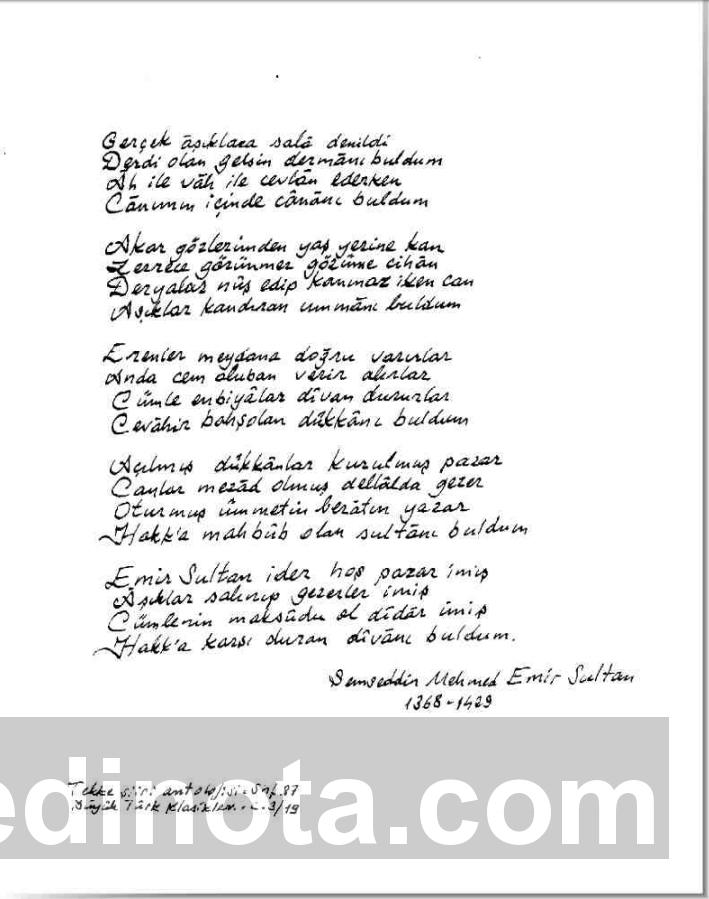 Gerçek âşıklara salâ denildi
Derdi olan gelsin dermânı buldum
Ah ile vâh ile cevlân ederken
Cânımın içinde cânânı buldum
Akar gözlerimden yaş yerine kan
Zerrece görünmez gözüme cihân
Deryalar nûş edip kanmaz iken can
Aşıklar kandıran ummânı buldum
Erenler meydana doğru varırlar
Anda cem oluban verir alırlar
Cümle enbiyâlar dîvan dururlar
Cevâhir bahşolan dükkânı buldum
Açılmış dükkânlar kurulmuş pazar
Canlar mezâd olmuş dellâlda gezer
Oturmuş ümmetin berâtın yazar
Hakk'a mahbûb olan sultânı buldum
Emir Sultan ider hoş pazar imiş
Âşıklar salınıp gezerler imiş
Cümlenin maksûdu ol dîdâr imiş
Hakk'a karşı duran dîvânı buldum.
Şemseddin Mehmed Emir Sultan
1368-1429
Tekke şiiri antolojisi. Shf. 87
Büyük Türk Klasikleri. C. 3/19
edinota.com